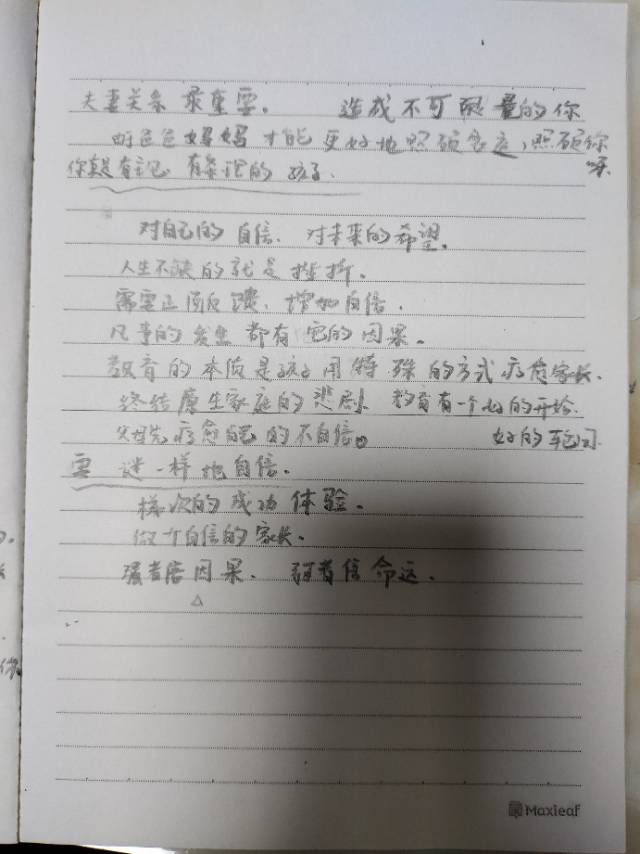 夫妻关系最重要。 造成不可限量的你
好爸爸妈妈才能更好地照顾家庭，照顾你
你就是有主见 有条理的孩子.
对自己的自信、对未来的希望。
人生不缺的就是挫折。
需要正面反馈、增加自信.
凡事的发生都有它的因果。
教育的本质是孩子用特殊的方式疗愈家长.
终结原生家庭的悲剧 教育有一个好的开始.
父母先疗愈自己的不自信。 好的
要 谜一样地自信.
的成功体验。
做个自信的家长.
强者信因果. 弱者信命运.
Maxleaf